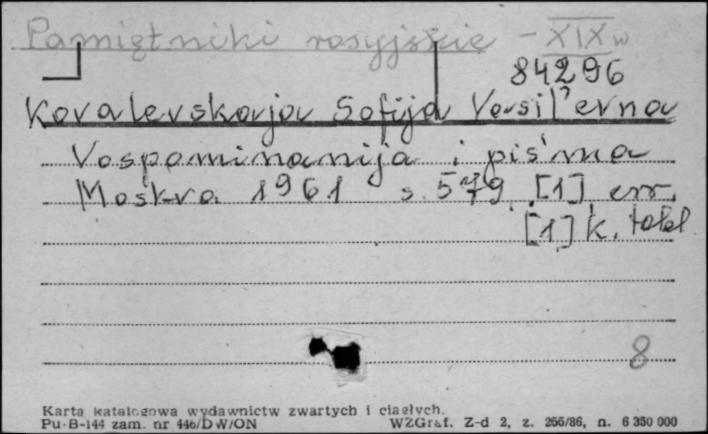 Pamiętniki rosyjskie - XIX w
84296
Kovalevskaja Sofija Vasil'evna
Vospominanija i pis'ma
Moskva 1961 s. 579 [1] err.
[1] k. tabl
8
Karta katalogowa wydawnictw zwartych i ciągłych.
Pu-B-144 zam. nr 446/DW/ON WZGraf. Z-d 2, z. 266/86, n. 6 350 000